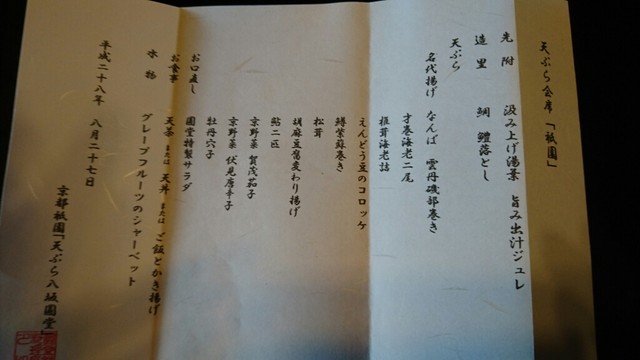 天ぷら会席「祇園」
先附 汲み上げ湯葉 旨み出汁ジュレ
造里 鯛 鱧落とし
天ぷら
名代揚げ なんば 雲丹磯部巻き
才巻海老二尾
椎茸海老詰
えんどう豆のコロッケ
鱚紫蘇巻き
松茸
胡麻豆腐変わり揚げ
鮎二匹
京野菜 賀茂茄子
京野菜 伏見唐辛子
牡丹穴子
お口直し 圓堂特製サラダ
お食事 天茶 または 天丼 または ご飯とかき揚げ
水物 グレープフルーツのシャーベット
平成二十八年 八月二十七日
京都祇園「天ぷら八坂圓堂」